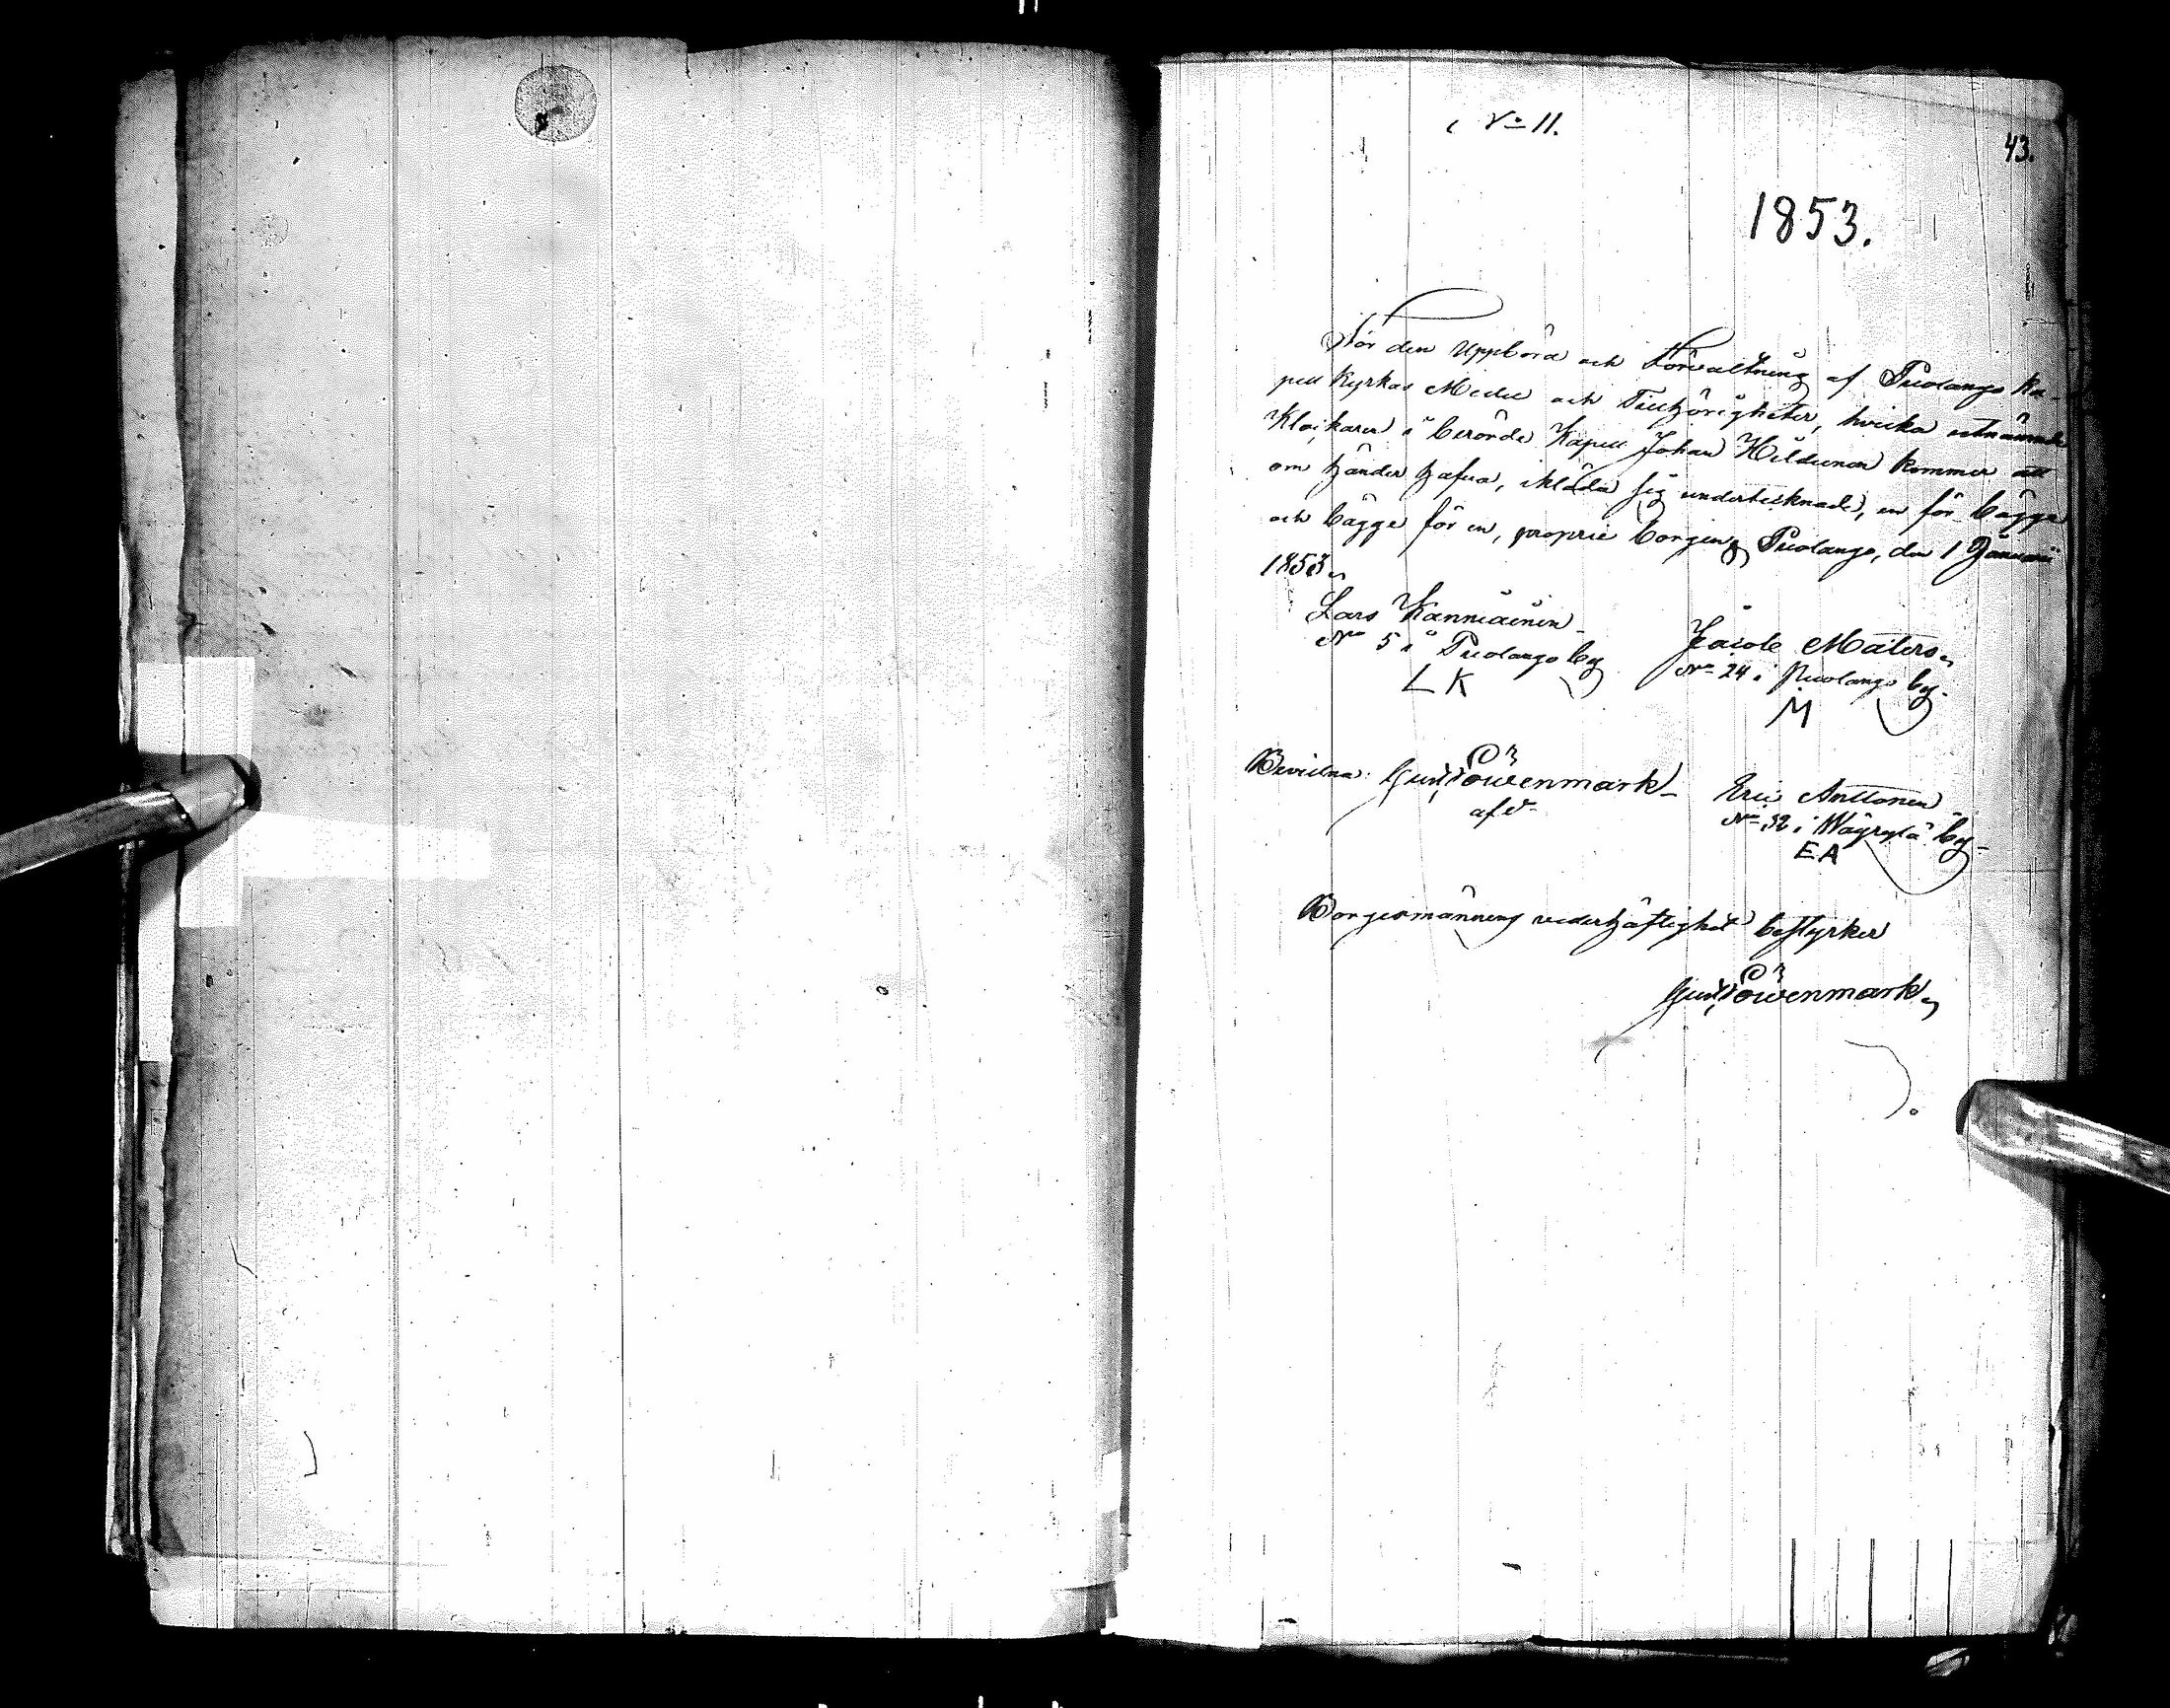 N:o 11.
43.
1853.
För den Uppbörd och Förvaltning af Puolango Ka-
pell Kyrkas Medel och Tillhörigheter, hvilka utnämnde
Klockaren i berörde Kapell Johan Heldunen kommer att
om händer hafva, ikläda sig undertecknade, en för bägge
och bägge för en, proprie borgen, Puolango, den 1 Januarii
1853.
Lars Kanniainen
N:o 5 i Puolango by
L K
Jacob Matero
N:o 24 i Puolango by
M
Bevittna: Gust. Löwenmark
Eric Anttonen
N:o 32 i Wäyrylä by
E A
Borgesmännens vederhäftighet bestyrker
Gust. Löwenmark